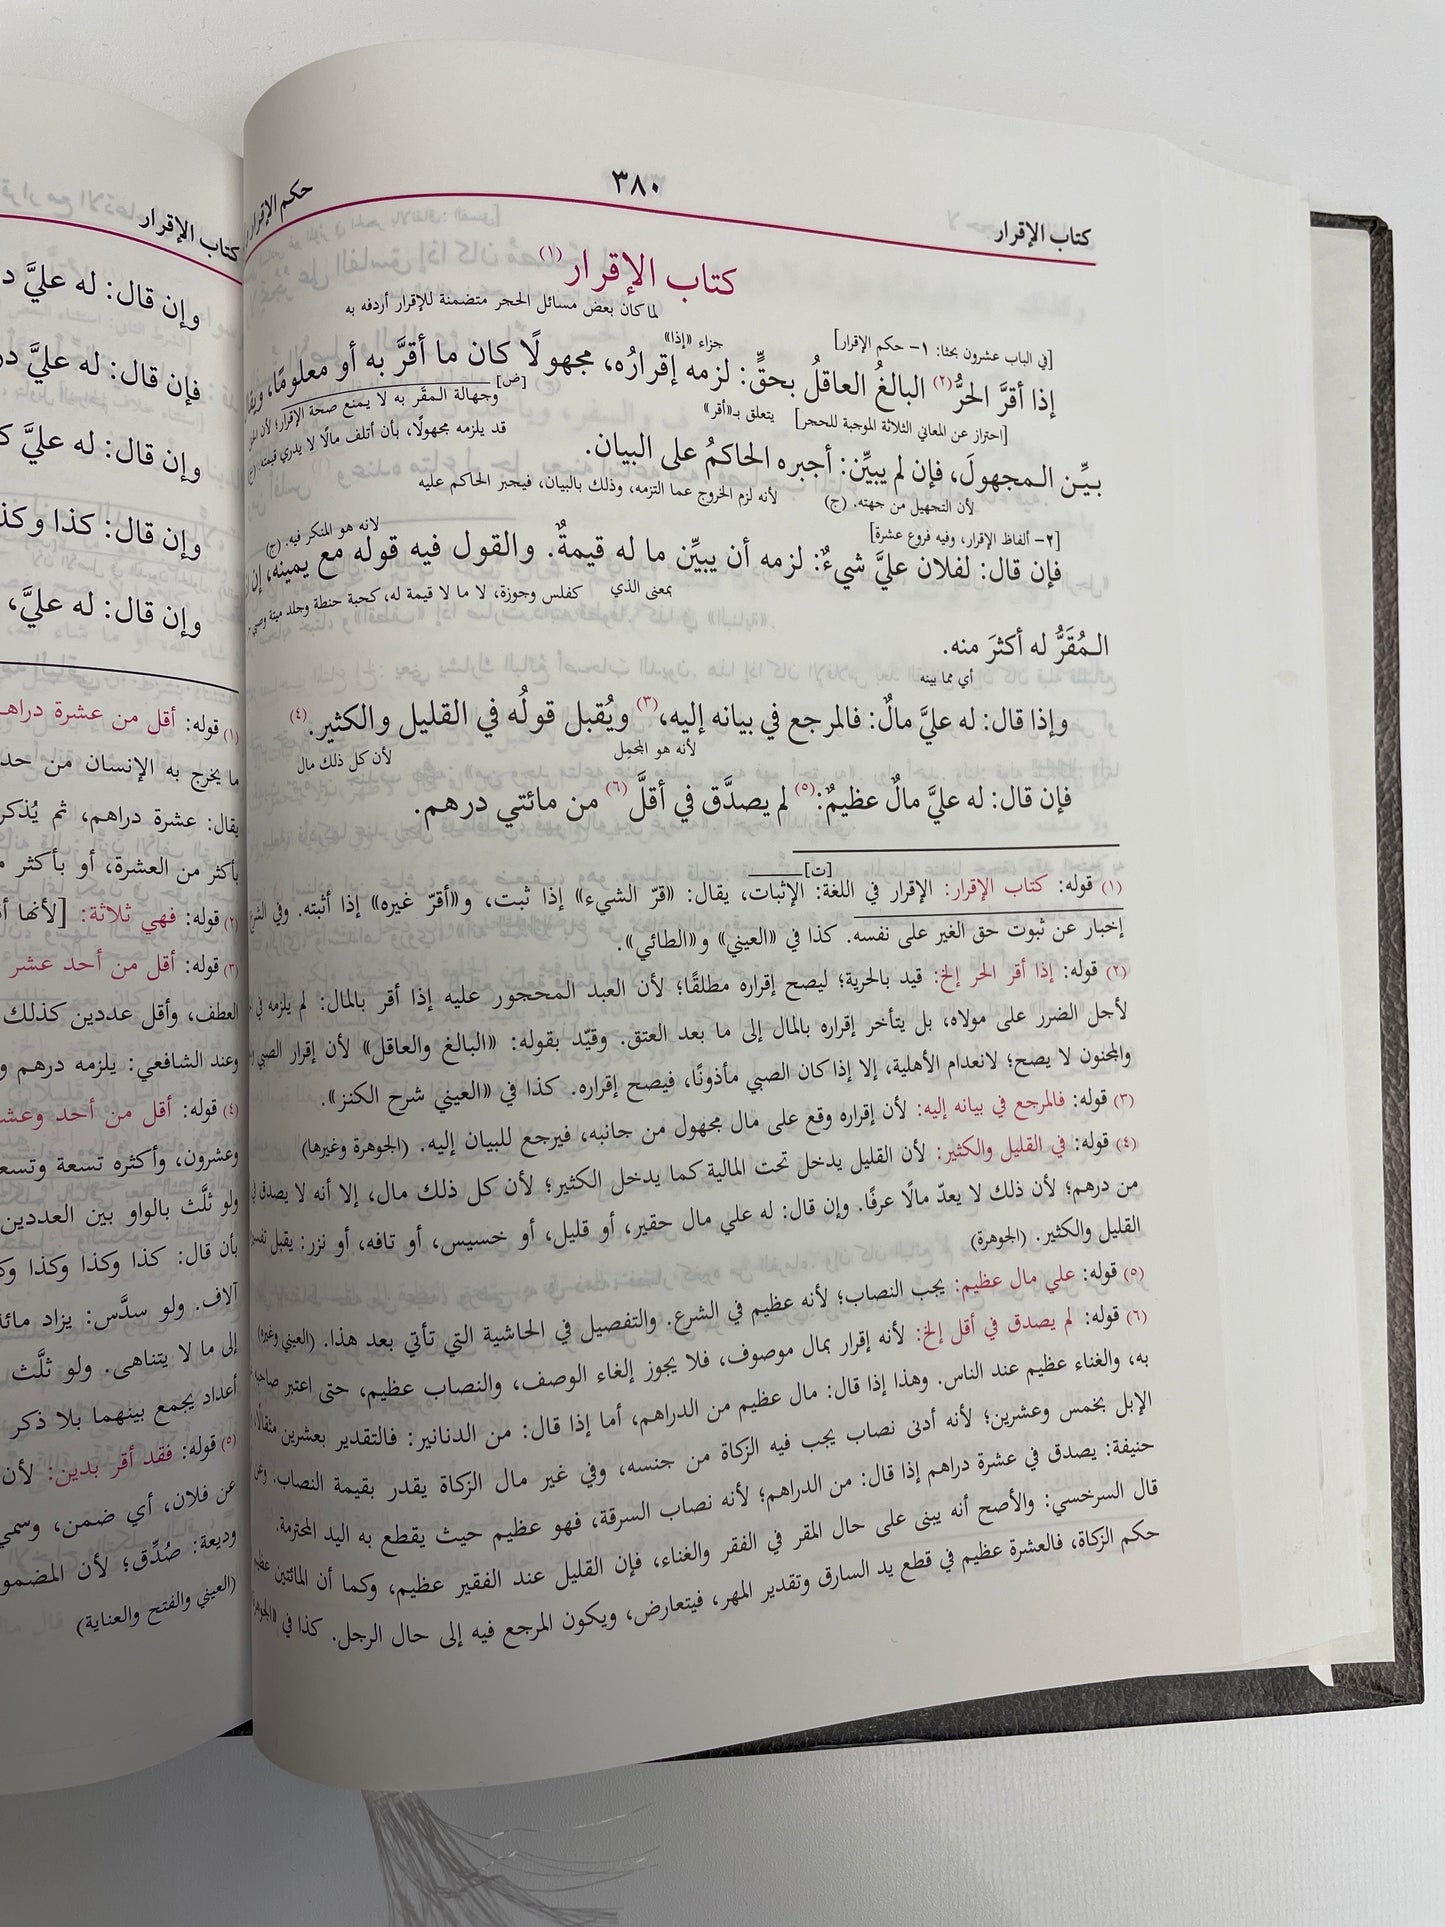 كتاب الإقرار
٣٨٠
حكم الإقرار
كتاب الإقرار (١)
لما كان بعض مسائل الحجر متضمنة للإقرار أردفه به
[في الباب عشرون بحثا: ١- حكم الإقرار]
جزاء «إذا»
إذا أقرَّ الحرُّ(٢) البالغُ العاقلُ بحقٍّ: لزمه إقرارُه، مجهولًا كان ما أقرَّ به أو معلومًا،
[احتراز عن المعاني الثلاثة الموجبة للحجر]
يتعلق بـ«أقر»
[ض]
وجهالة المقَر به لا يمنع صحة الإقرار؛ لأن
قد يلزمه مجهولًا، بأن أتلف مالًا لا يدري قيمته. (ج)
بيِّن المجهولَ، فإن لم يبيِّن: أجبره الحاكمُ على البيان.
لأن التجهيل من جهته. (ج)
لأنه لزم الخروج عما التزمه، وذلك بالبيان، فيجبر الحاكم عليه
[٢- ألفاظ الإقرار، وفيه فروع عشرة]
لانه هو المنكر فيه. (ج)
فإن قال: لفلان عليَّ شيءٌ: لزمه أن يبيِّن ما له قيمةٌ. والقول فيه قوله مع يمينه، إن
بمعنى الذي
كفلس وجوزة، لا ما لا قيمة له، كحبة حنطة وجلد ميتة وصبي
المُقَرُّ له أكثرَ منه.
أي مما بينه
وإذا قال: له عليَّ مالٌ: فالمرجع في بيانه إليه،(٣) ويُقبل قولُه في القليل والكثير.(٤)
لأنه هو المجمِل
لأن كل ذلك مال
فإن قال: له عليَّ مالٌ عظيمٌ:(٥) لم يصدَّق في أقلَّ(٦) من مائتي درهم.
[ت]
(١) قوله: كتاب الإقرار: الإقرار في اللغة: الإثبات، يقال: «قرّ الشيء» إذا ثبت، و«أقرّ غيره» إذا أثبته. وفي
إخبار عن ثبوت حق الغير على نفسه. كذا في «العيني» و«الطائي».
(٢) قوله: إذا أقر الحر إلخ: قيد بالحرية؛ ليصح إقراره مطلقًا؛ لأن العبد المحجور عليه إذا أقر بالمال: لم يلزمه في
لأجل الضرر على مولاه، بل يتأخر إقراره بالمال إلى ما بعد العتق. وقيّد بقوله: «البالغ والعاقل» لأن إقرار الصبي
والمجنون لا يصح؛ لانعدام الأهلية، إلا إذا كان الصبي مأذونًا، فيصح إقراره. كذا في «العيني شرح الكنز».
(٣) قوله: فالمرجع في بيانه إليه: لأن إقراره وقع على مال مجهول من جانبه، فيرجع للبيان إليه. (الجوهرة وغيرها)
(٤) قوله: في القليل والكثير: لأن القليل يدخل تحت المالية كما يدخل الكثير؛ لأن كل ذلك مال، إلا أنه لا يصدق في
من درهم؛ لأن ذلك لا يعدّ مالًا عرفًا. وإن قال: له علي مال حقير، أو قليل، أو خسيس، أو تافه، أو نزر: يقبل
القليل والكثير. (الجوهرة)
(٥) قوله: علي مال عظيم: يجب النصاب؛ لأنه عظيم في الشرع. والتفصيل في الحاشية التي تأتي بعد هذا. (العيني وغيره)
(٦) قوله: لم يصدق في أقل إلخ: لأنه إقرار بمال موصوف، فلا يجوز إلغاء الوصف، والنصاب عظيم، حتى اعتبر
به، والغناء عظيم عند الناس. وهذا إذا قال: مال عظيم من الدراهم، أما إذا قال: من الدنانير: فالتقدير بعشرين
الإبل بخمس وعشرين؛ لأنه أدنى نصاب يجب فيه الزكاة من جنسه، وفي غير مال الزكاة يقدر بقيمة النصاب.
حنيفة: يصدق في عشرة دراهم إذا قال: من الدراهم؛ لأنه نصاب السرقة، فهو عظيم حيث يقطع به اليد المحترمة.
قال السرخسي: والأصح أنه يبنى على حال المقر في الفقر والغناء، فإن القليل عند الفقير عظيم، وكما أن المائتين
حكم الزكاة، فالعشرة عظيم في قطع يد السارق وتقدير المهر، فيتعارض، ويكون المرجع فيه إلى حال الرجل. كذا في
كتاب الإقرار
وإن قال: له عليَّ
فإن قال: له عليَّ
وإن قال: له عليَّ
وإن قال: كذا
وإن قال: له عليَّ،
(١) قوله: أقل من عشرة
ما يخرج به الإنسان من
يقال: عشرة دراهم، ثم يُذكر
بأكثر من العشرة، أو بأكثر
(٢) قوله: فهي ثلاثة: [لأنها
(٣) قوله: أقل من أحد عشر
العطف، وأقل عددين كذلك
وعند الشافعي: يلزمه درهم
(٤) قوله: أقل من أحد
وعشرون، وأكثره تسعة
ولو ثلَّث بالواو بين العددين
بأن قال: كذا وكذا وكذا
آلاف. ولو سدَّس: يزاد
إلى ما لا يتناهى. ولو ثلَّث
أعداد يجمع بينهما بلا ذكر
(٥) قوله: فقد أقر بدين: لأن
عن فلان، أي ضمن،
وديعة: صُدِّق؛ لأن
(العيني والفتح والعناية)